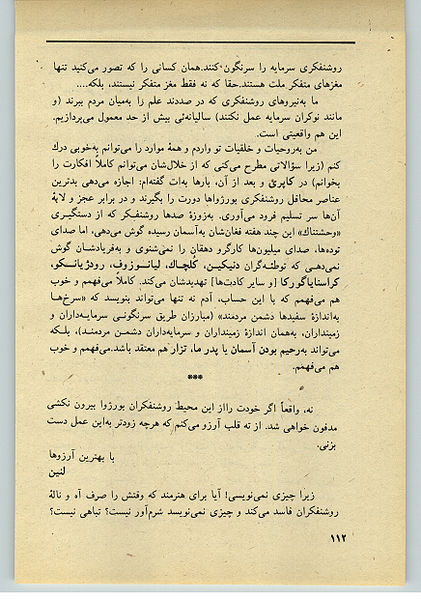 روشنفکری سرمایه را سرنگون کنند. همان کسانی را که تصور می‌کنید تنها
مغزهای متفکر ملت هستند. حقا که نه فقط مغز متفکر نیستند، بلکه....
ما به‌نیروهای روشنفکری که در صددند علم را به‌میان مردم ببرند (و
مانند نوکران سرمایه عمل نکنند) سالیانه‌ئی بیش از حد معمول می‌پردازیم.
این هم واقعیتی است.
من به‌روحیات و خلقیات تو واردم و همهٔ موارد را می‌توانم به‌خوبی درك
کنم (زیرا سؤالاتی مطرح می‌کنی که از خلال‌شان می‌توانم کاملاً افکارت را
بخوانم) در کاپری و بعد از آن، بارها به‌ات گفته‌ام: اجازه می‌دهی بدترین
عناصر محافل روشنفکری بورژواها دورت را بگیرند و در برابر عجز و لابهٔ
آن‌ها سر تسلیم فرود می‌آوری. به‌زوزهٔ صدها روشنفکر که از دستگیری
«وحشتناك» این چند هفته فغان‌شان به‌آسمان رسیده گوش می‌دهی، اما صدای
توده‌ها، صدای میلیون‌ها کارگر و دهقان را نمی‌شنوی و به‌فریادشان گوش
نمی‌دهی که توطئه‌گران دنیکین، کلچاك، لیانوزوف، رودزیانکو،
کراسنایاگورکا [و سایر کادت‌ها] تهدیدشان می‌کند. کاملاً می‌فهمم و خوب
هم می‌فهمم که با این حساب، آدم نه تنها می‌تواند بنویسد که «سرخ‌ها
به‌اندازهٔ سفیدها دشمن مردمند» (مبارزان طریق سرنگونی سرمایه‌داران و
زمینداران، به‌همان اندازهٔ زمینداران و سرمایه‌داران دشمن مردمند)، بلکه
می‌تواند به‌رحیم بودن آسمان یا پدر ما، تزار هم معتقد باشد. می‌فهمم و خوب
هم می‌فهمم.
***
نه، واقعاً اگر خودت را از این محیط روشنفکران بورژوا بیرون نکشی
مدفون خواهی شد. از ته قلب آرزو می‌کنم که هرچه زودتر به‌این عمل دست
بزنی.
با بهترین آرزوها
لنین
زیرا چیزی نمی‌نویسی! آیا برای هنرمند که وقتش را صرف آه و نالهٔ
روشنفکران فاسد می‌کند و چیزی نمی‌نویسد شرم‌آور نیست؟ تباهی نیست؟
۱۱۲